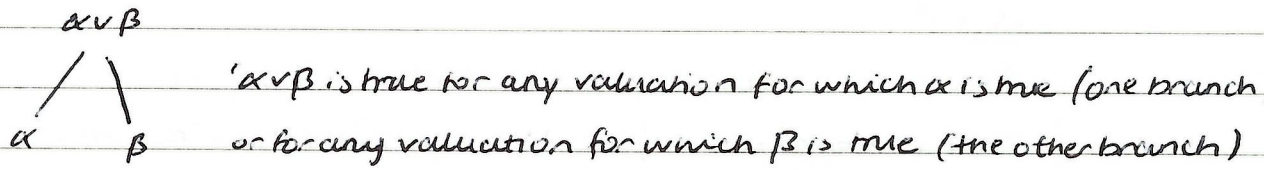 α∨β
'α∨β is true for any valuation for which α is true (one branch
α β or for any valuation for which β is true (the other branch)